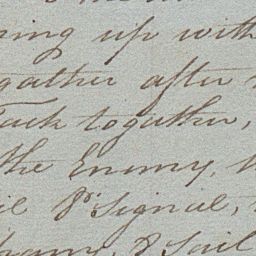 ing up with
gather after
Tack together,
the Enemy,
Pr Signal,
& Sail